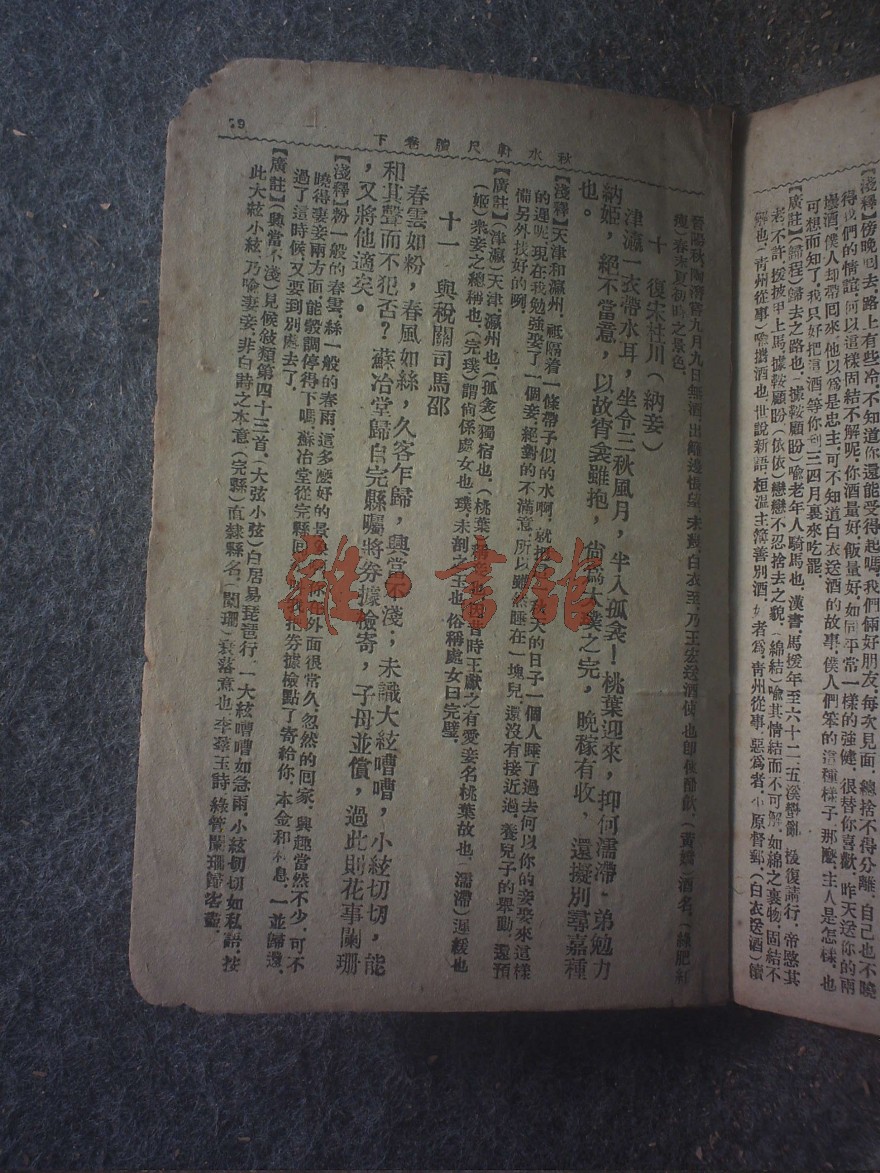 【淺釋】傍晚回去，路上有些冷，不知道你還能受得起嗎，我們倆好朋友，每次見面，總捨不得分離，自己也不曉
得我們的情誼，何以這樣固結不解呢，你酒量好，飯量好，如同平常一樣的強健，很替你喜歡，昨天送你的兩
壜酒，僕人却帶回來，他以爲是忠主，可不知道白衣送酒的故事，僕人們笨的這種樣子，那麼，主人是怎樣，也
可想而知了，我只好把這酒等你到三四月裏來吃罷。
【廣註】（歸程）歸去之路也，（據鞍顧盼）喩老年人騎馬也，漢書，馬援年至六十二，五溪蠻亂，援復請行，帝愍其
老不許，援披甲上馬，據鞍顧盼，（依依）戀戀不忍捨去之貌，（綿結）喩其情結而不可解，如綿之裹物，固結不
解也，青州從事）喩攜酒也，世說新語，桓温主簿善別酒，好者爲，靑州從事，惡爲者，平原督郵，（白衣送酒）續
晉陽秋，陶潛嘗九月九日無酒，出籬邊悵望，未幾，白衣至，乃王宏送酒使也，即便酣飲，（黃嬌）酒名，（綠肥紅
瘦）春末夏初時之景色，
十　復宋社川（納妾）
津瀛一衣帶水耳，坐令三秋風月，半入孤衾！桃葉迎來，抑何濡滯．弟勉力
納姬，絕不當意，以故宵衾雖抱，尙爲太璞之完，晚稼有收，還擬別尋嘉種
也。
【淺釋】天津和瀛州，祇隔着一條帶子似的水啊，就把秋天的日子一個人睡了過去，何以你的妾娶來這樣
的遲呢，現在我勉強娶了一個妾，絕對的不滿意，所以雖然睡在一塊兒，還沒有接近過，養兒子的舉動，還預
備另外找好的啊，
【廣註】（津瀛）天津，瀛州也，（孤衾）獨宿也，（桃葉）稱妾也，因昔時王獻之有愛妾名桃葉故也，（濡滯）遲緩也
（姬）衆妾之總稱也（完璞）謂尙係處女也，璞，未剖之玉也，俗稱處女曰完璧，
十一　與稅關司馬邵
春雲如粉，春風如絲，久客乍歸，興當不淺；未識大絃嘈嘈，小絃切切，能
和其聲而不犯否？蘇冶堂歸自完縣，囑將券據檢寄，子母並償，過此則花事闌珊
，又將他適矣。
【淺釋】粉一般的春雲，絲一般的春雨，這多麼好的景，你在外面很常久，忽然的回家，興趣當然不少，可不
曉得妻妾兩方面能彀調停得下嗎，蘇冶堂從完縣回，叫我把券據檢點了寄給你，本金和利息，一並歸還，
過了這時候，又要到別處去了，
【廣註】（興當不淺）見候敍類第四十三首，（大弦小弦）白居易琵琶行，一大絃嘈嘈如急雨，小絃切切如私語，按
此大絃小絃，乃喩妻妾，非白詩之本意（完縣）直隸縣名，（闌珊）衰落意也，李羣玉詩，綠管闌珊歸客盡，
秋水軒尺牘卷下
雜·書館